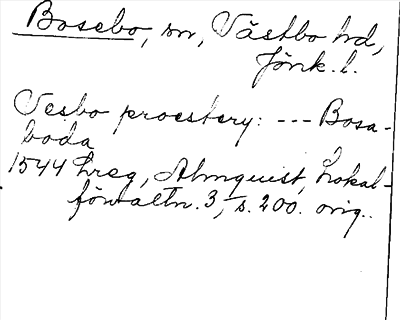 Bosebo, sn, Västbo hd,
Jönk. l.
Vesbo proestery: --- Bosa-
boda
1544 hreg, Almquist, Lokal-
förvaltn. 3, s. 200. orig.